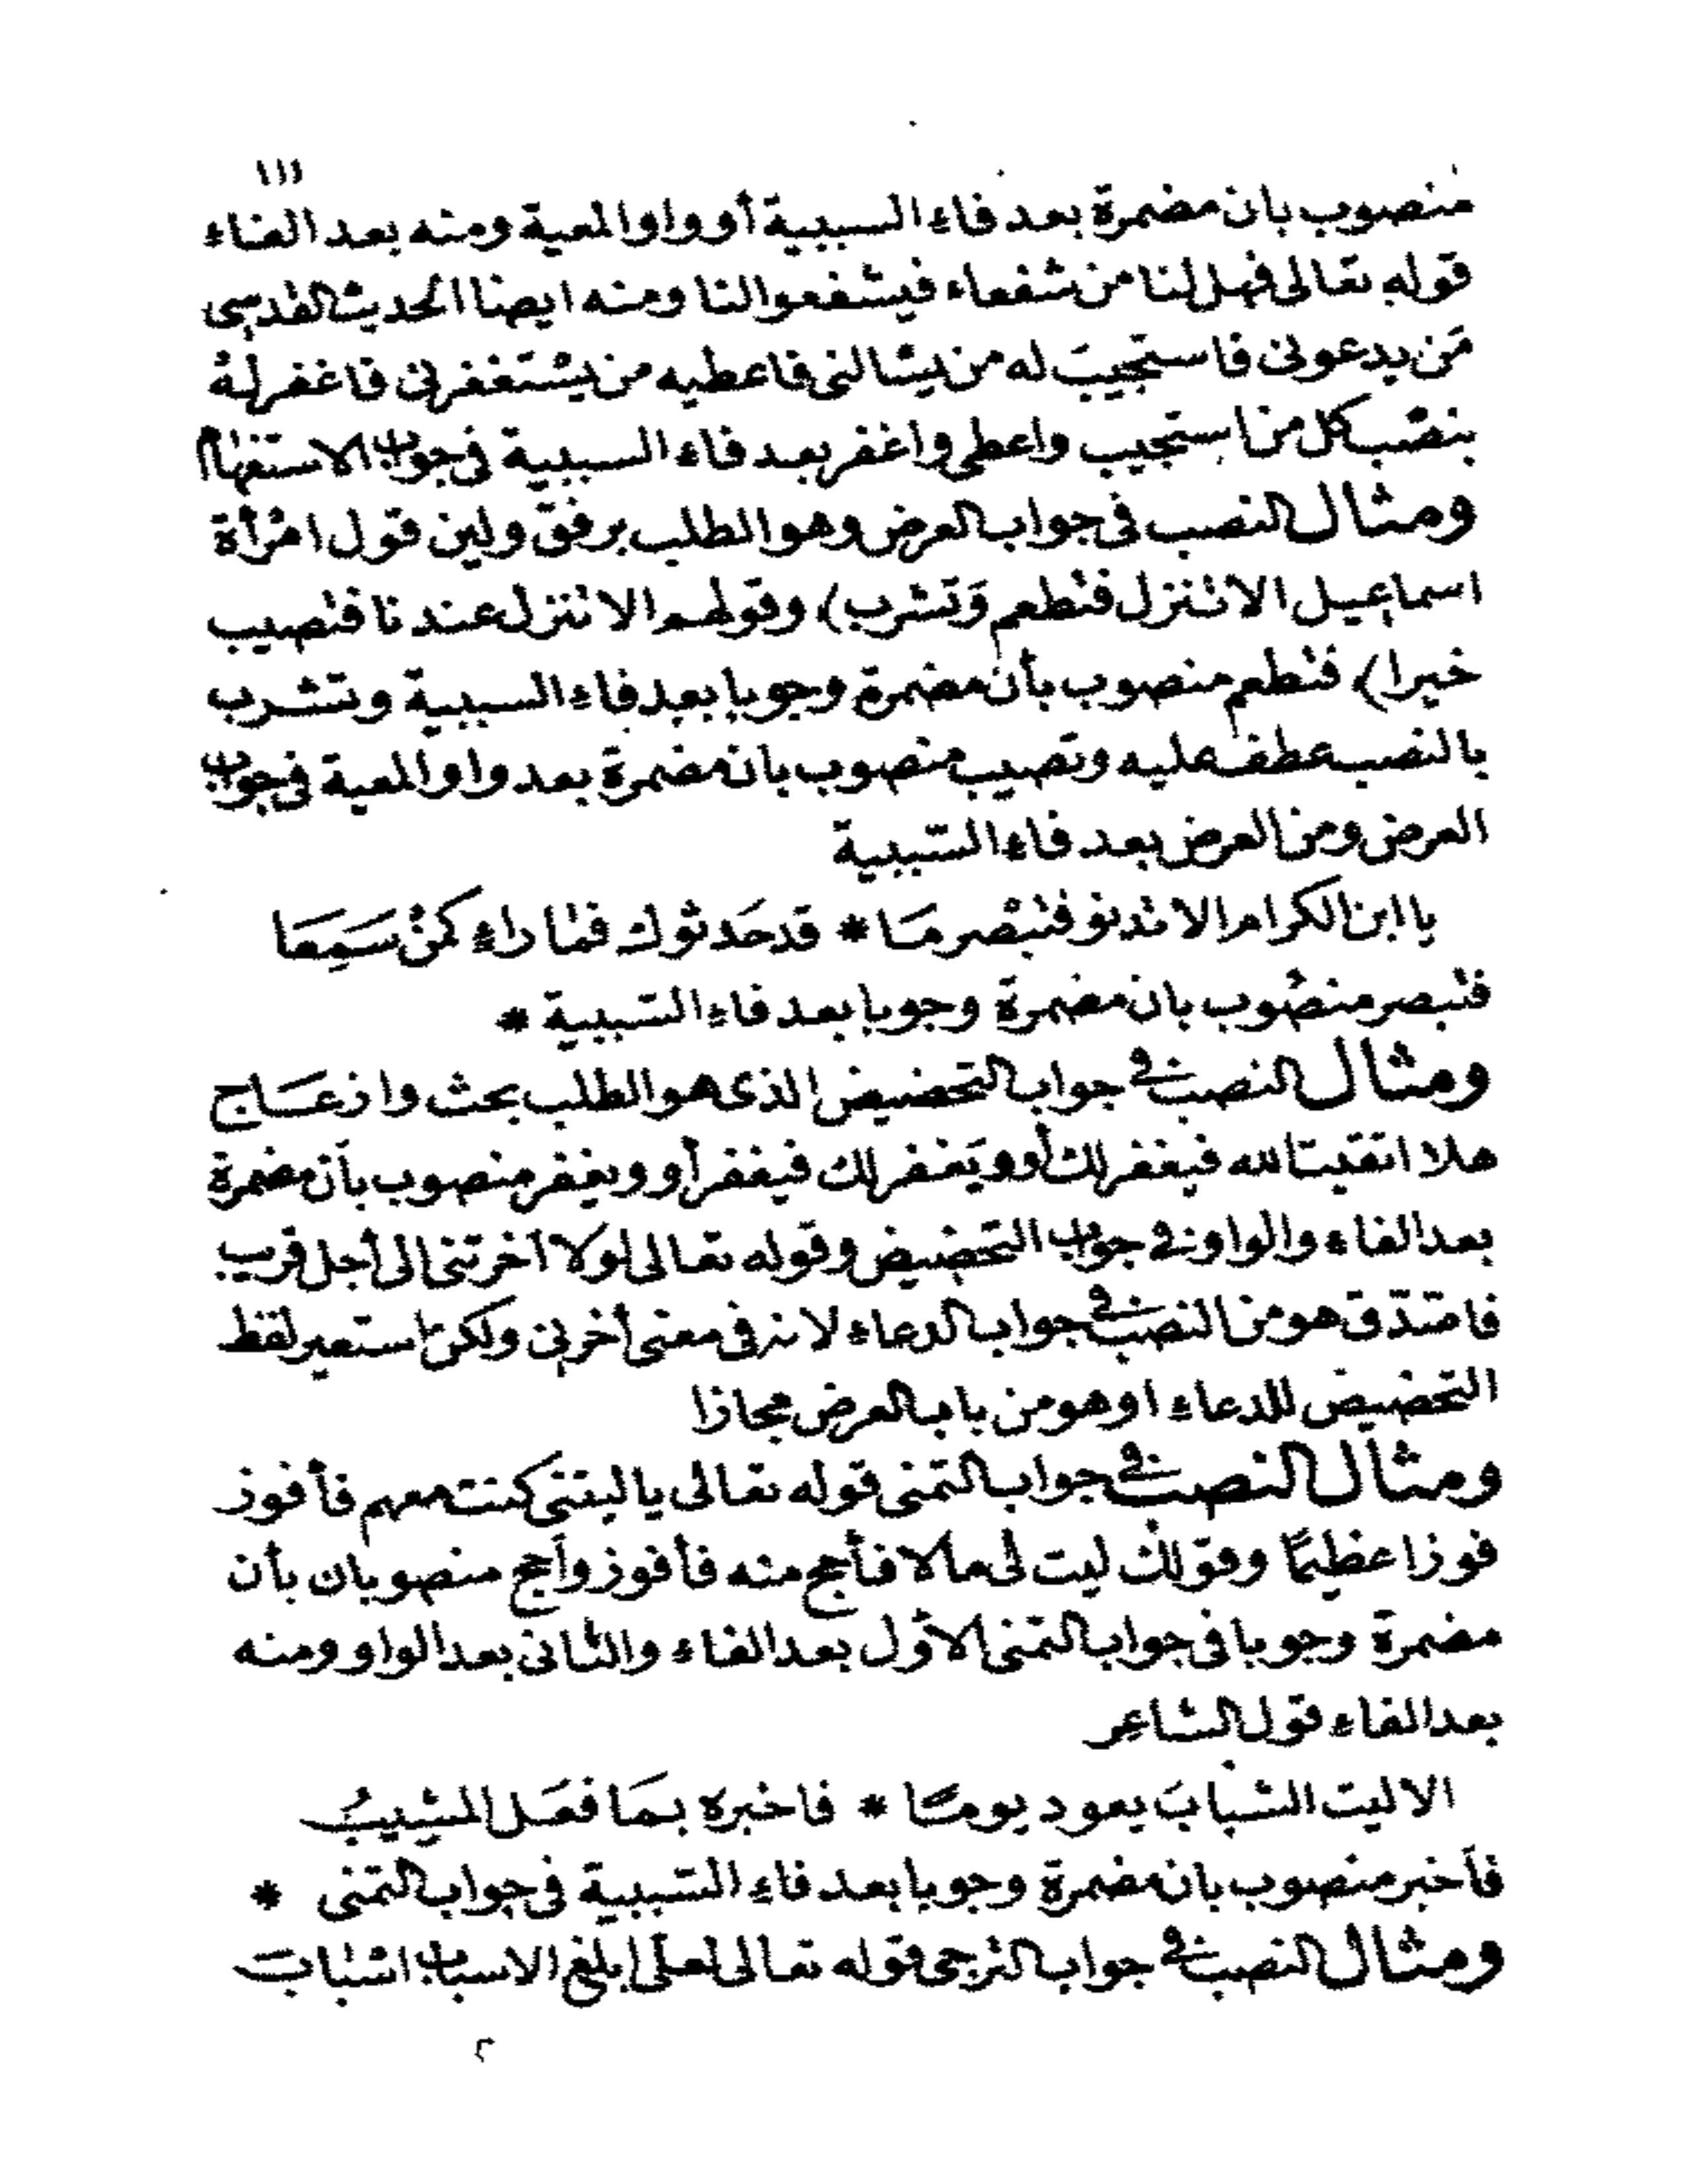 ١١١
منصوب بان مضمرة بعد فاء السببية أو واو المعية ومنه بعد الفاء
قوله تعالى فهل لنا من شفعاء فيشفعوا لنا ومنه ايضا الحديث القدسى
مَن يدعونى فاستجيبَ له من يسْالنى فاعطيه من يسْتغفرنى فاغفرله
بنصْب كل من استجيب واعطى واغفر بعد فاء السببية فى جواب الاستفهام
ومثال النصب فى جواب العرض وهو الطلب برفق ولين قول امْرأة
اسماعيل الا تنزل فتطعم وَتشرب) وقولهم الا تنزل عندنا فتصيب
خيرا) فتطعم منصوب بأن مضمرة وجوبا بعد فاء السببية وتشرب
بالنصب عطف عليه وتصيب منصوب بان مضمرة بعد واو المعية فى جواب
العرض ومن العرض بعد فاء السّببية
يا ابن الكرام الا تدنو فتبْصر مَا * قد حَدثوك فما راء كمنْ سَمِعَا
فتبصر منصُوب بان مضمرة وجوبا بعد فاء السّببية *
ومثال النصب فى جواب التحضيض الذى هو الطلب بحث وازعَاج
هلا اتقيت الله فيغفر لك أو ويَغفر لك فيغفر أو ويغفر منصوب بأن مضمرة
بعد الفاء والواو فى جواب التحضيض وقوله تعالى لولا أخرتنى الى أجل قريب
فاصّدّق هو من النصب فى جواب الدعاء لانه فى معنى أخرنى ولكن استعير لفظ
التحضيض للدعاء او هو من باب العرض مجازا
ومثال النصب فى جواب التمنى قوله تعالى يا ليتنى كنت معهم فأفوز
فوزا عظيمًا وقولك ليت لى مالا فأحج منه فأفوز وأحج منصوبان بأن
مضمرة وجوبا فى جواب التمنى الأوّل بعد الفاء والثانى بعد الواو ومنه
بعد الفاء قول الشاعر
الا ليت الشبابَ يعود يومًا * فاخبره بمَا فعَل المشيبُ
فأخبر منصوب بان مضمرة وجوبا بعد فاء السّببية فى جواب التمنى *
ومثال النصب فى جواب الترجى قوله تعالى لعلّى ابلغ الاسباب اسْبابَ
٢